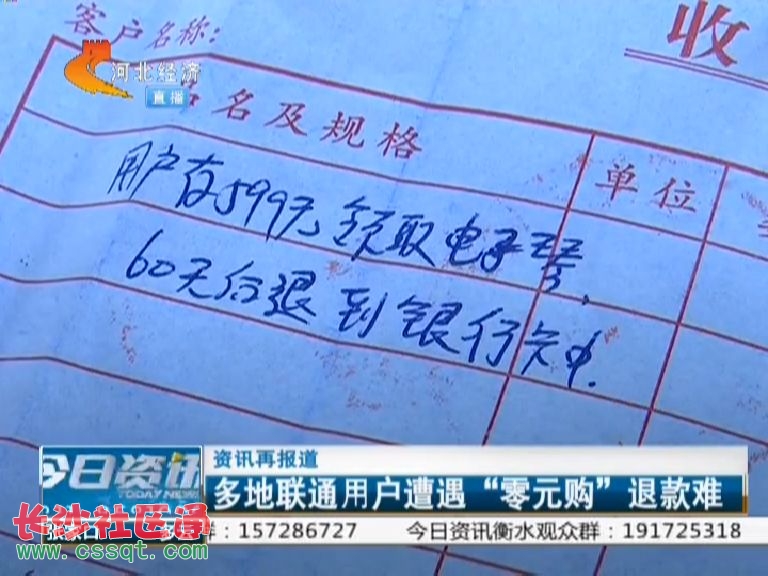 客户名称：
收
河北经济
直播
名及规格
单位
用户存599元领取电子琴.
60天后退到银行卡中.
今日资讯
TODAY NEWS
资讯再报道
多地联通用户遭遇“零元购”退款难
群：157286727 今日资讯衡水观众群：191725318
长沙社区通
www.cssqt.com